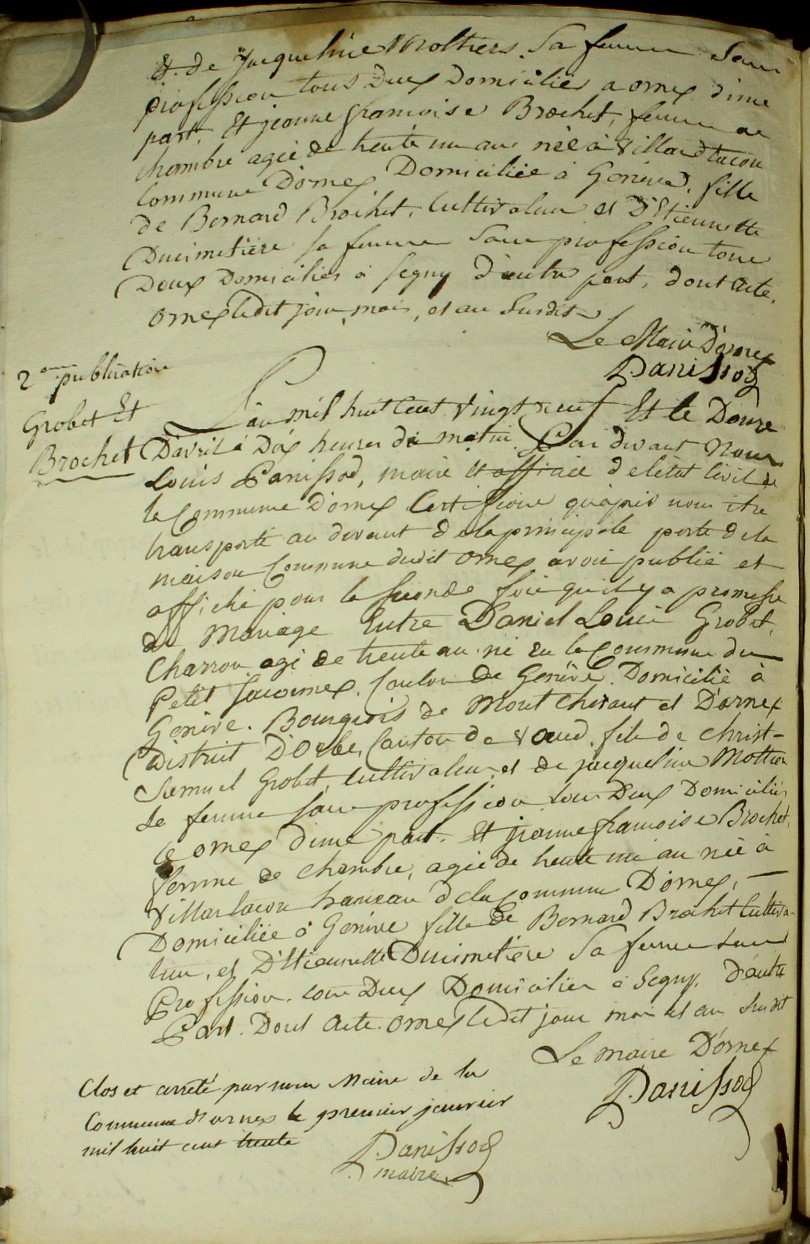 et de Jacqueline Mottier Sa femme Sans
profession tous Deux Domiciliés a ornex d'une
part. Et jeanne françoise Brochet, femme de
chambre agée de trente un ans née à Villard tacon
Commune D'ornex Domiciliée à Genève, fille
de Bernard Brochet, Cultivateur et D'Etiennette
Ducimetière sa femme Sans profession tous
Deux Domiciliés à Segny d'autre part, dont acte.
ornex ledit jour, mois, et an Susdit
Le Maire D'ornex
Panissod
2me publication
Grobet Et
Brochet
L'an mil huit cent vingt neuf Et le Douze
D'avril à Dix heures du matin. Par devant Nous
Louis Panissod, maire et officier de l'état Civil de
la Commune D'ornex Certifions qu'après nous être
transporté au devant de la principale porte de la
maison Commune dudit ornex avoir publié et
affiché pour la Seconde fois qu'il y a promesse
de Mariage Entre Daniel Louis Grobet,
Charron agé de trente an né en la Commune du
Petit Saconnex. Canton de Genève. Domicilié à
Genève. Bourgeois de Montcherant et D'arnex
District D'Orbe, Canton de Vaud. fils de Christ-
Samuel Grobet, Cultivateur, et de jacqueline Mottier
Sa femme sans profession tous Deux Domiciliés
a ornex d'une part. Et jeanne françoise Brochet,
femme de chambre, agée de trente un an née à
Villar tacon hameau de la Commune D'ornex, —
Domiciliée à Genève fille de Bernard Brochet Cultiva-
teur, et D'Etiennette Ducimetière Sa femme Sans
Profession. tous Deux Domiciliés à Segny. D'autre
Part. Dont Acte. ornex ledit jour mois et an Susdit
Le maire D'ornex
Panissod
Clos et arreté par nous Maire de la
Commune d'ornex le premier janvier
mil huit cent trente
Panissod
maire